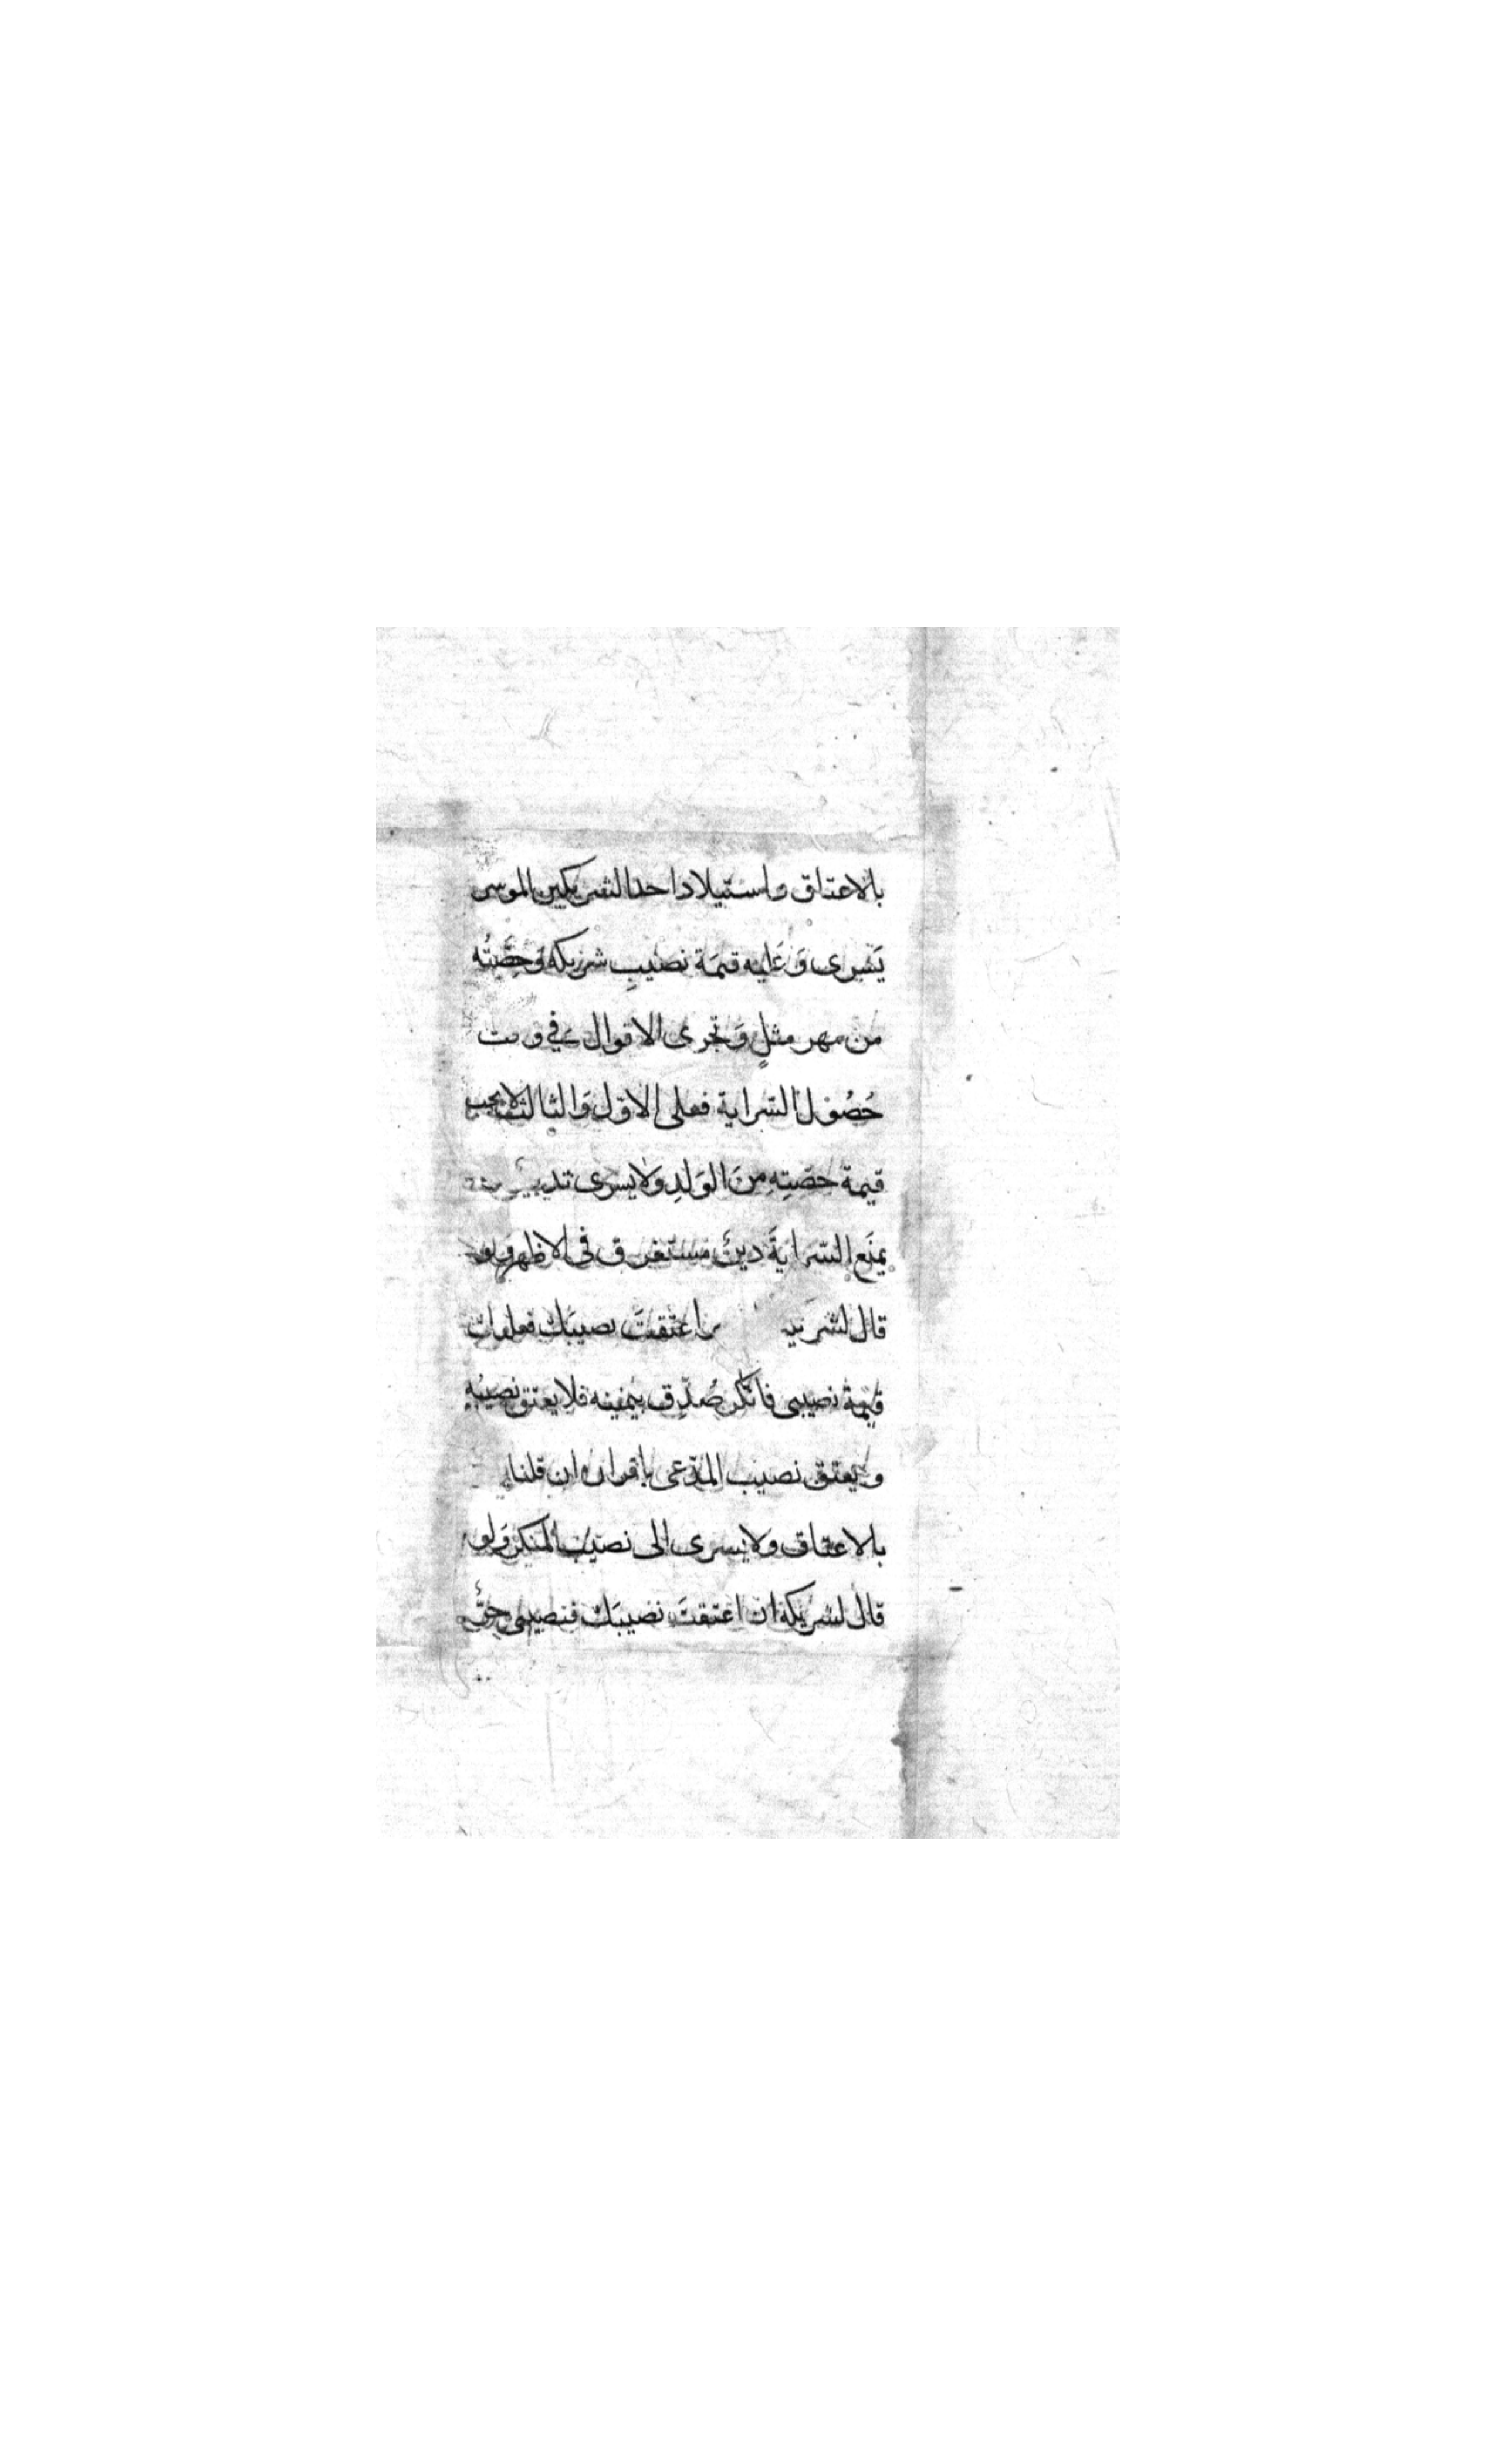 بالاعتاق واستيلاد احد الشريكين الموسر
يَسْرى وَعَليْه قيمَة نصيبِ شريكه وَحِصَّتُه
من مهر مثلٍ وَتجرى الاقوال في وقت
حُصُول السّراية فعلى الاوّل وَالثالث لا يجب
قيمة حصَتِهِ منَ الوَلدِ ولا يسرى تدبير
يمنَع السّرايَةَ دينٌ مستغرق فى الاظهر وَلو
قال اعتقتَ نصيبَك فعليك
قيْمة نصيبى فانكر صُدّق بيمينه فلا يعتق نصيبُه
ويعتق نصيب المدّعى باقراره ان قلنا
بالاعتاق ولا يسرى الى نصيب المنكر وَلو
قال لشريكه ان اعتقتَ نصيبَك فنصيبى حرٌّ